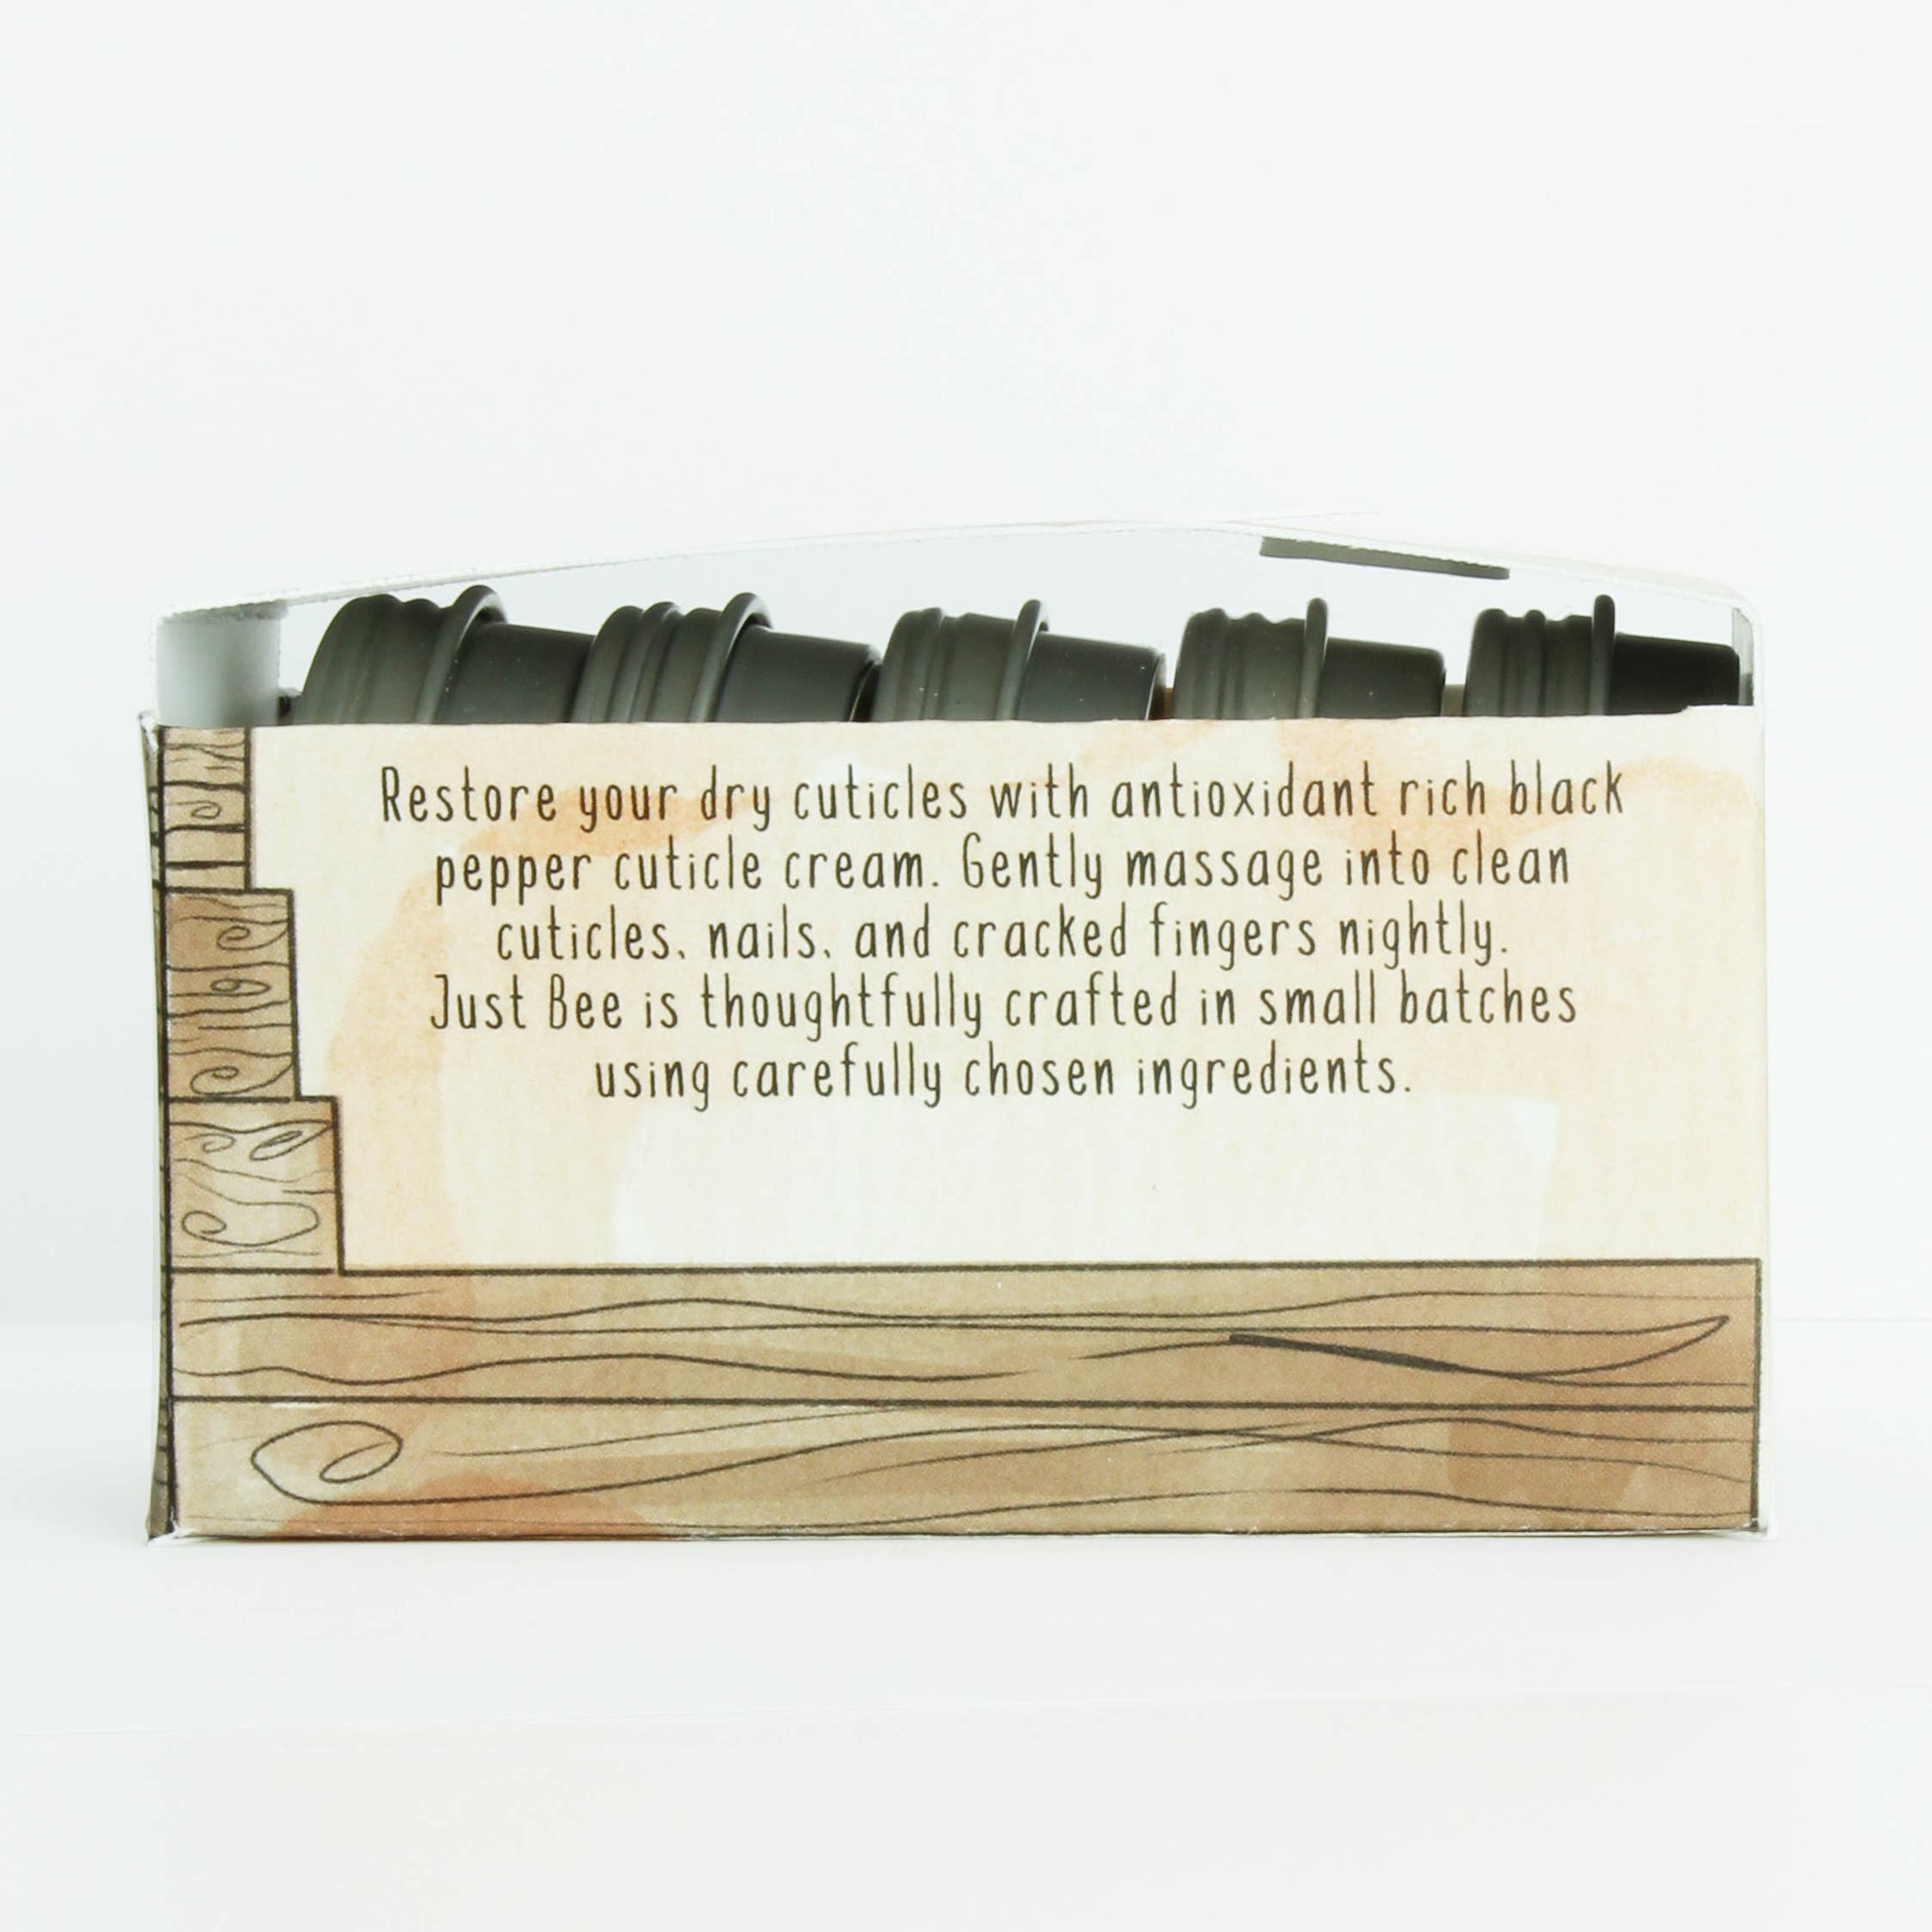 Restore your dry cuticles with antioxidant rich black
pepper cuticle cream. Gently massage into clean
cuticles, nails, and cracked fingers nightly.
Just Bee is thoughtfully crafted in small batches
using carefully chosen ingredients.